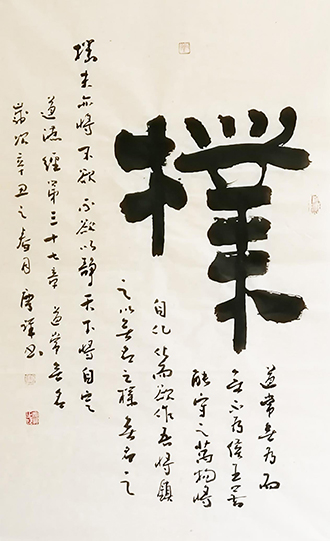 樸
道常無為而
無不為侯王若
能守之萬物將
自化化而欲作吾將鎮
之以無名之樸無名之
樸夫亦將不欲不欲以靜天下將自定
道德經第三十七章 道常無名
歲次辛丑之春月 書